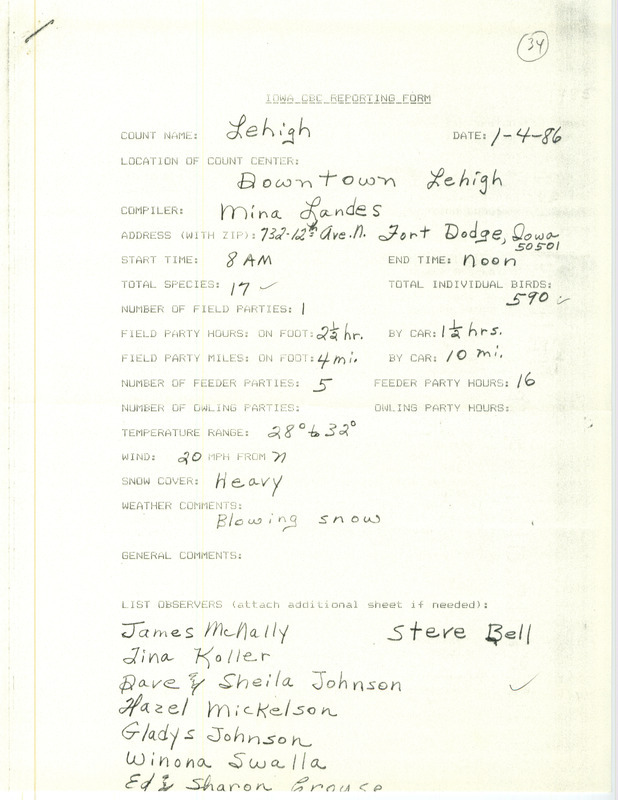 34
IOWA CBC REPORTING FORM
COUNT NAME: Lehigh DATE: 1-4-86
LOCATION OF COUNT CENTER:
Downtown Lehigh
COMPILER: Mina Landes
ADDRESS (WITH ZIP): 732-12th Ave. N. Fort Dodge, Iowa
50501
START TIME: 8 AM END TIME: noon
TOTAL SPECIES: 17 ✓ TOTAL INDIVIDUAL BIRDS:
590 ✓
NUMBER OF FIELD PARTIES: 1
FIELD PARTY HOURS: ON FOOT: 2½ hr. BY CAR: 1½ hrs.
FIELD PARTY MILES: ON FOOT: 4 mi. BY CAR: 10 mi.
NUMBER OF FEEDER PARTIES: 5 FEEDER PARTY HOURS: 16
NUMBER OF OWLING PARTIES: OWLING PARTY HOURS:
TEMPERATURE RANGE: 28° to 32°
WIND: 20 MPH FROM N
SNOW COVER: Heavy
WEATHER COMMENTS:
Blowing snow
GENERAL COMMENTS:
LIST OBSERVERS (attach additional sheet if needed):
James McNally Steve Bell
Tina Koller
Dave & Sheila Johnson ✓
Hazel Mickelson
Gladys Johnson
Winona Swalla
Ed & Sharon